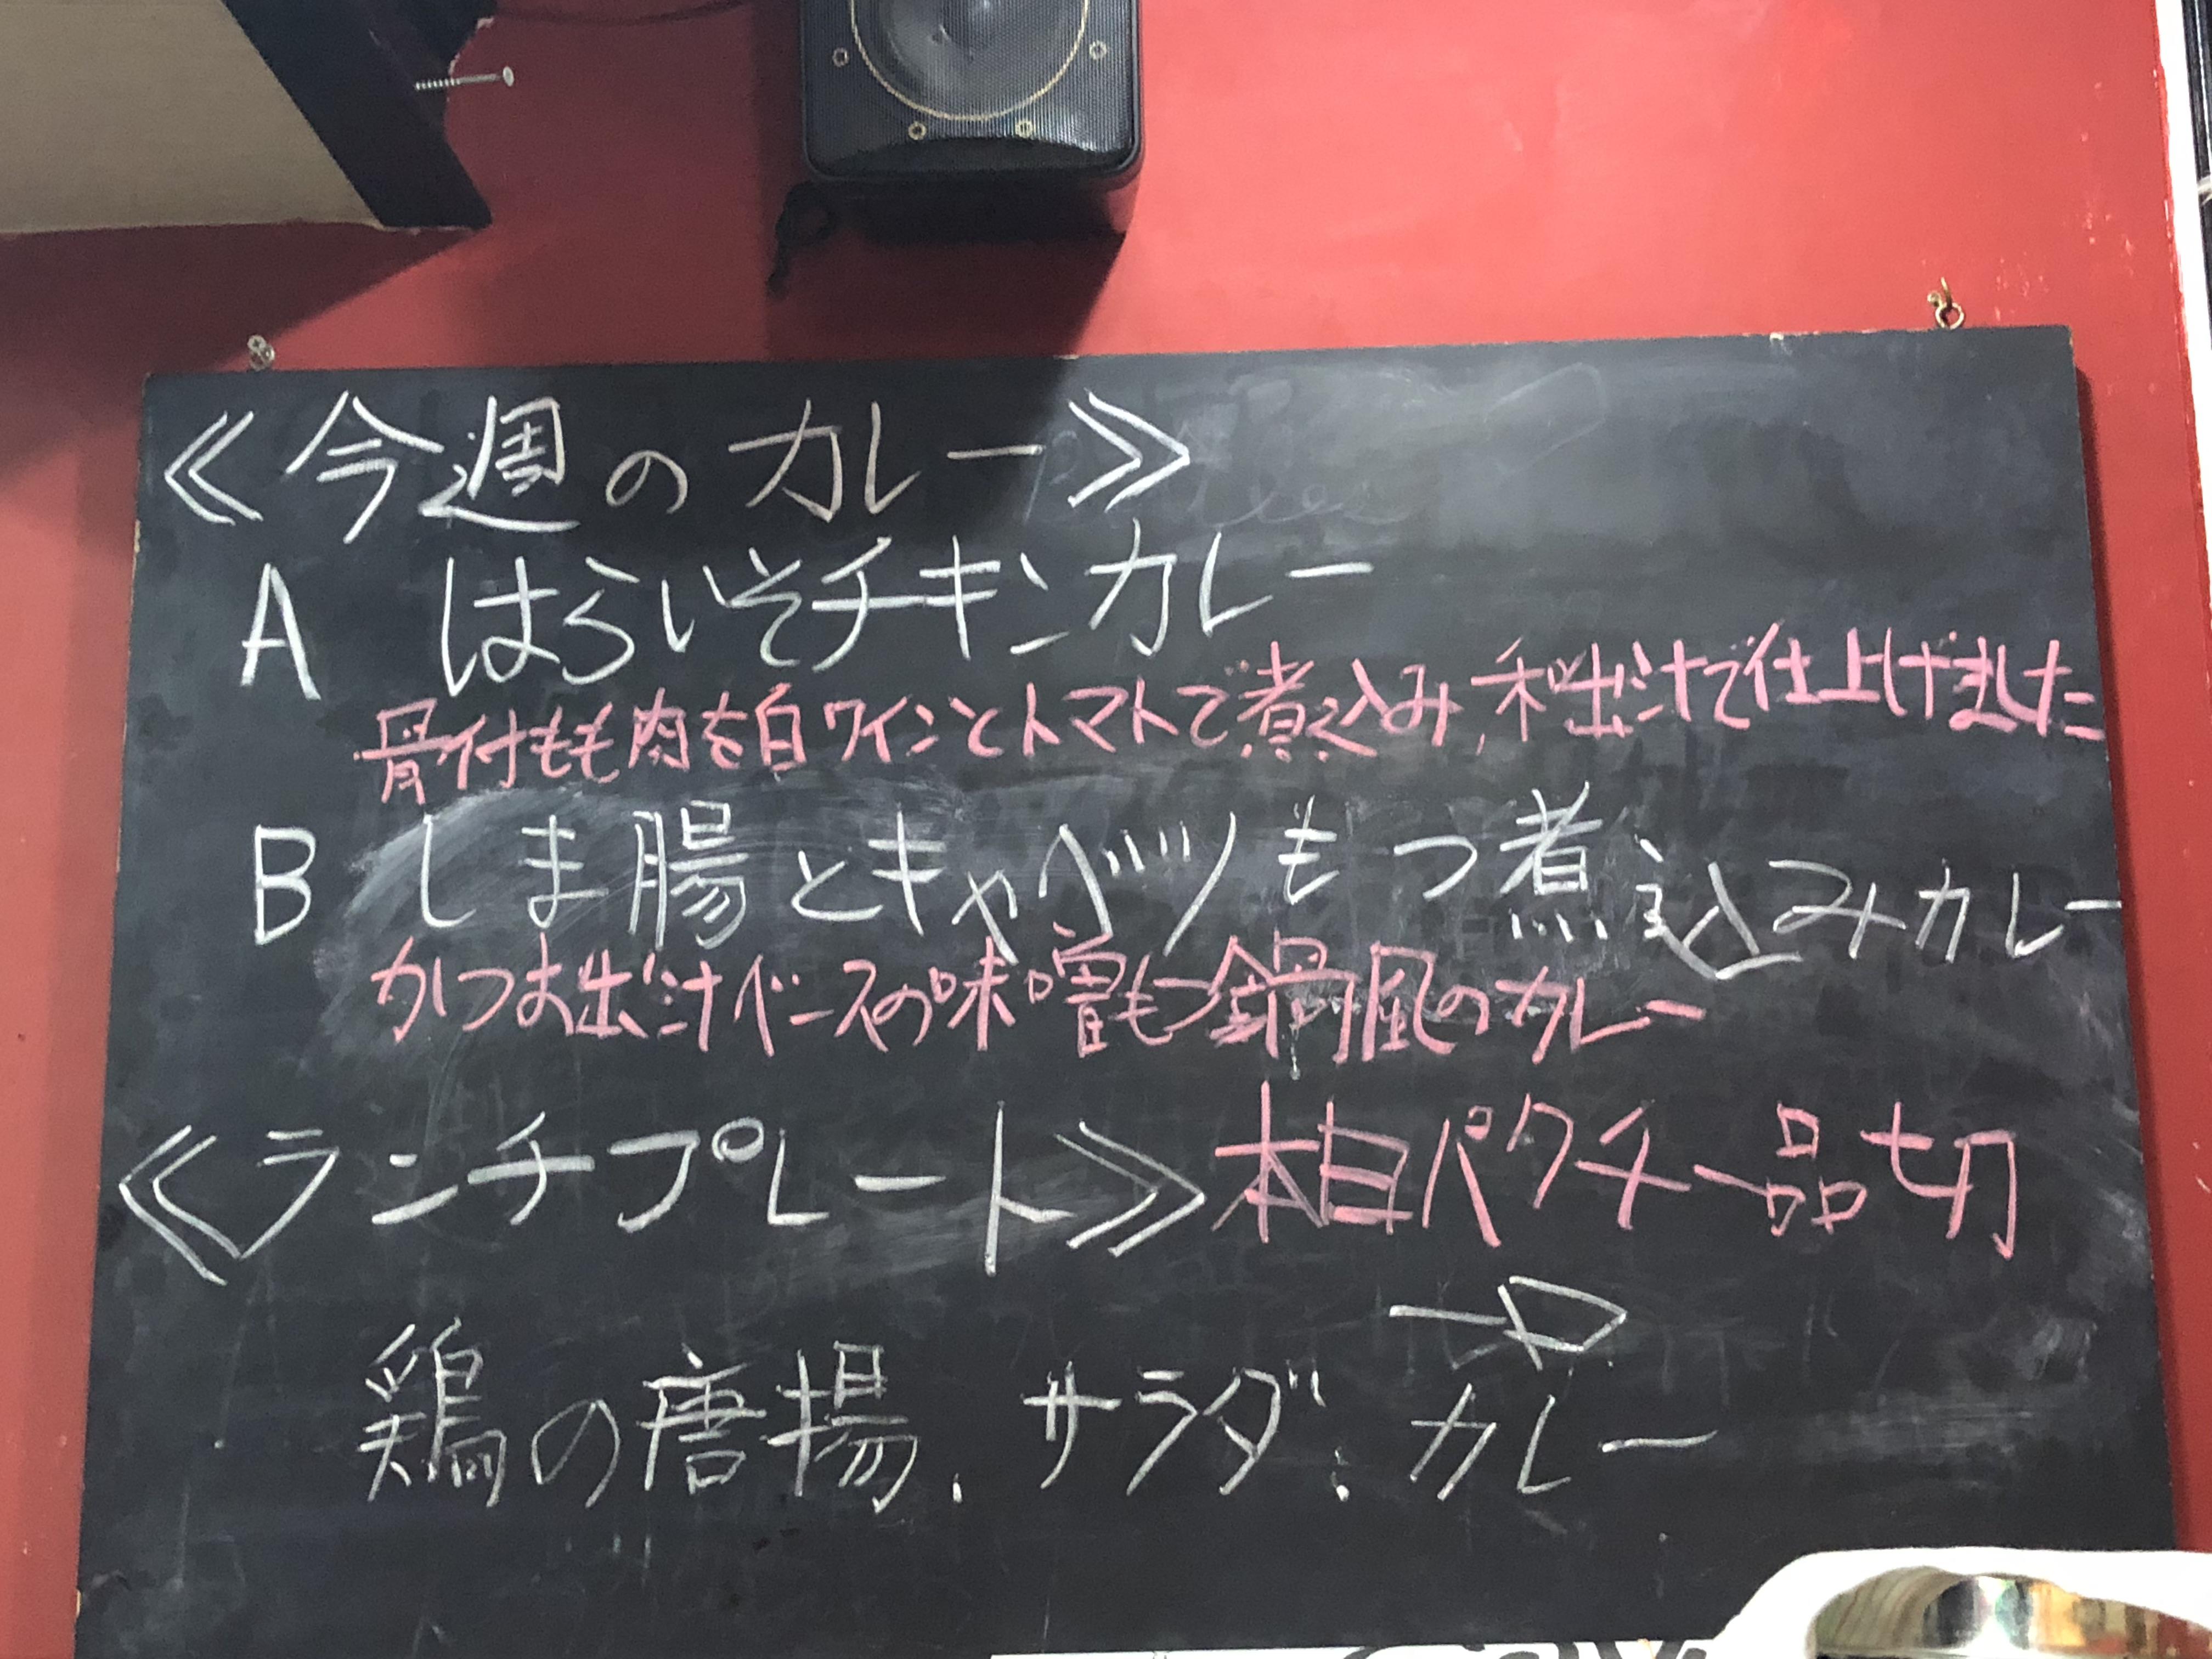 ≪今週のカレー≫
A はらいそチキンカレー
骨付もも肉を白ワインとトマトで煮込み、和出汁で仕上げました
B しま腸とキャベツもつ煮込みカレー
かつお出汁ベースの味噌もつ鍋風のカレー
≪ランチプレート≫ 本日パクチー品切
鶏の唐揚、サラダ、カレー